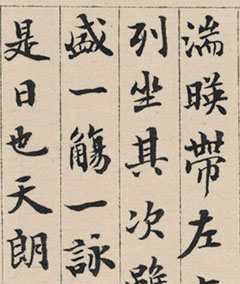 湍暎帶左
列坐其次雖
盛一觴一詠
是日也天朗